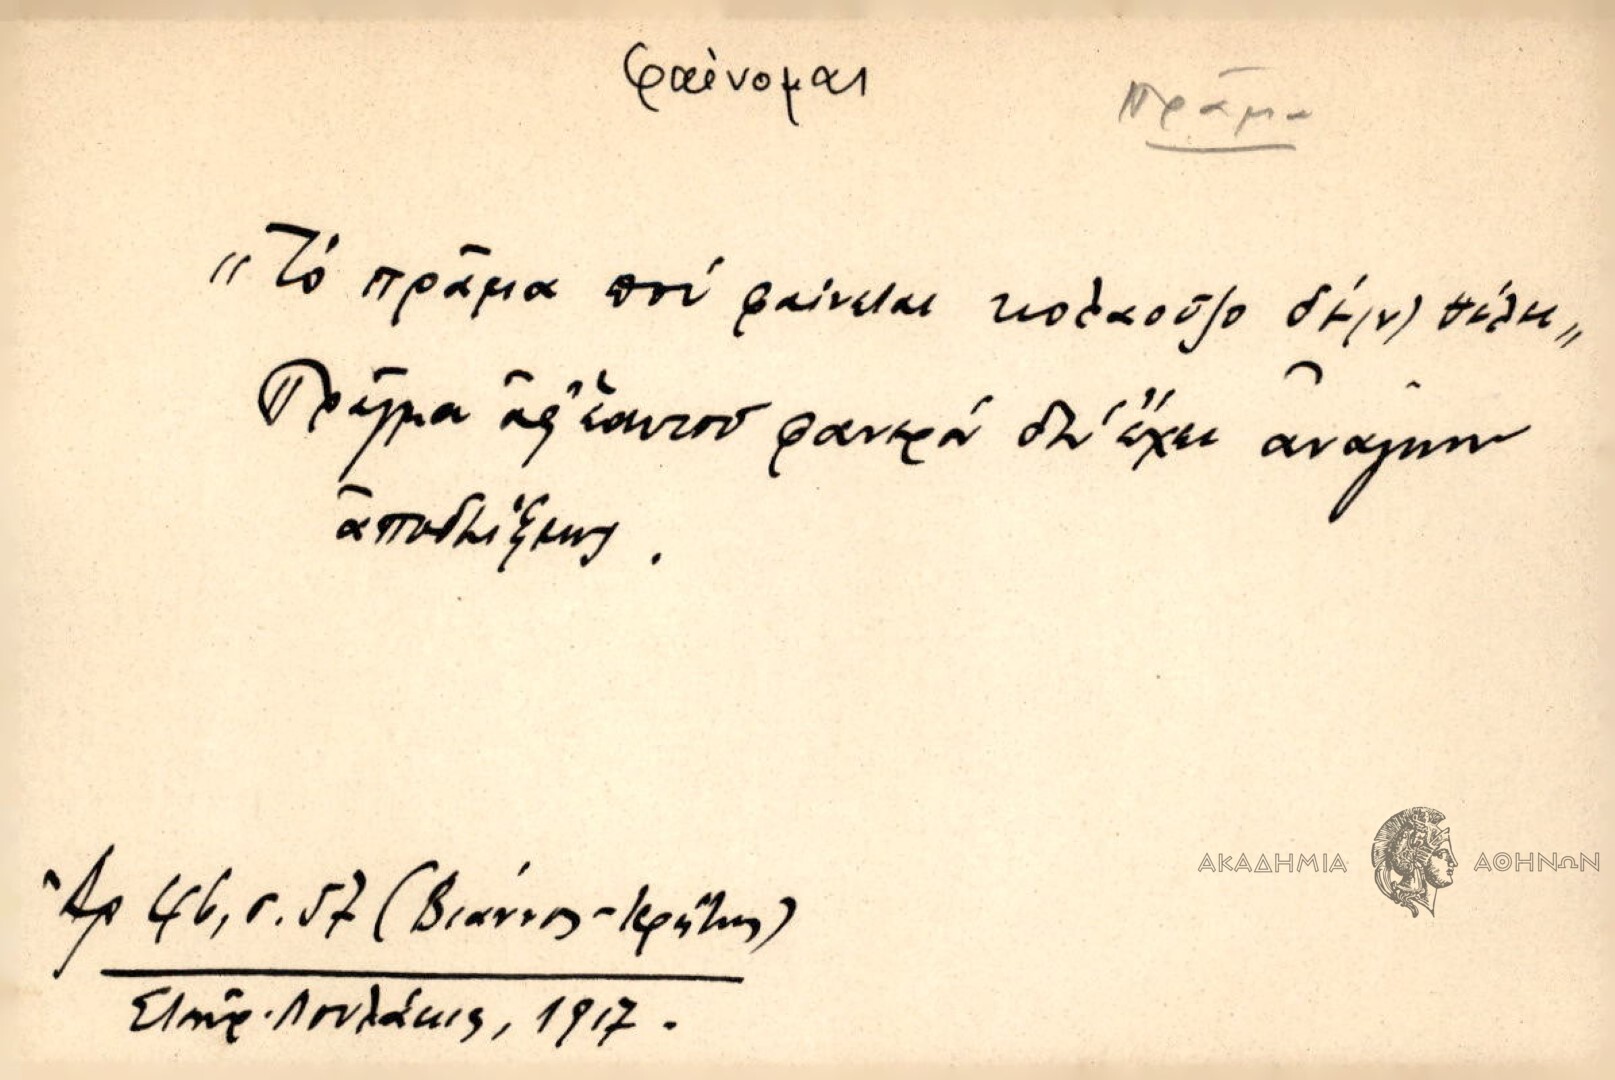 φαίνομαι
Πρᾶμα
"Τό πρᾶμα πού φαίνεται κολαοῦζο δέ(ν) θέλει"
Πρᾶγμα ἀφ' ἑαυτοῦ φανερό δέν ἔχει ἀνάγκην
ἀποδείξεως.
Ἀρ 46, σ. 57 (Βιάννος - Κρήτης)
Σπυρ. Λουλάκης, 1917.
ΑΚΑΔΗΜΙΑ ΑΘΗΝΩΝ